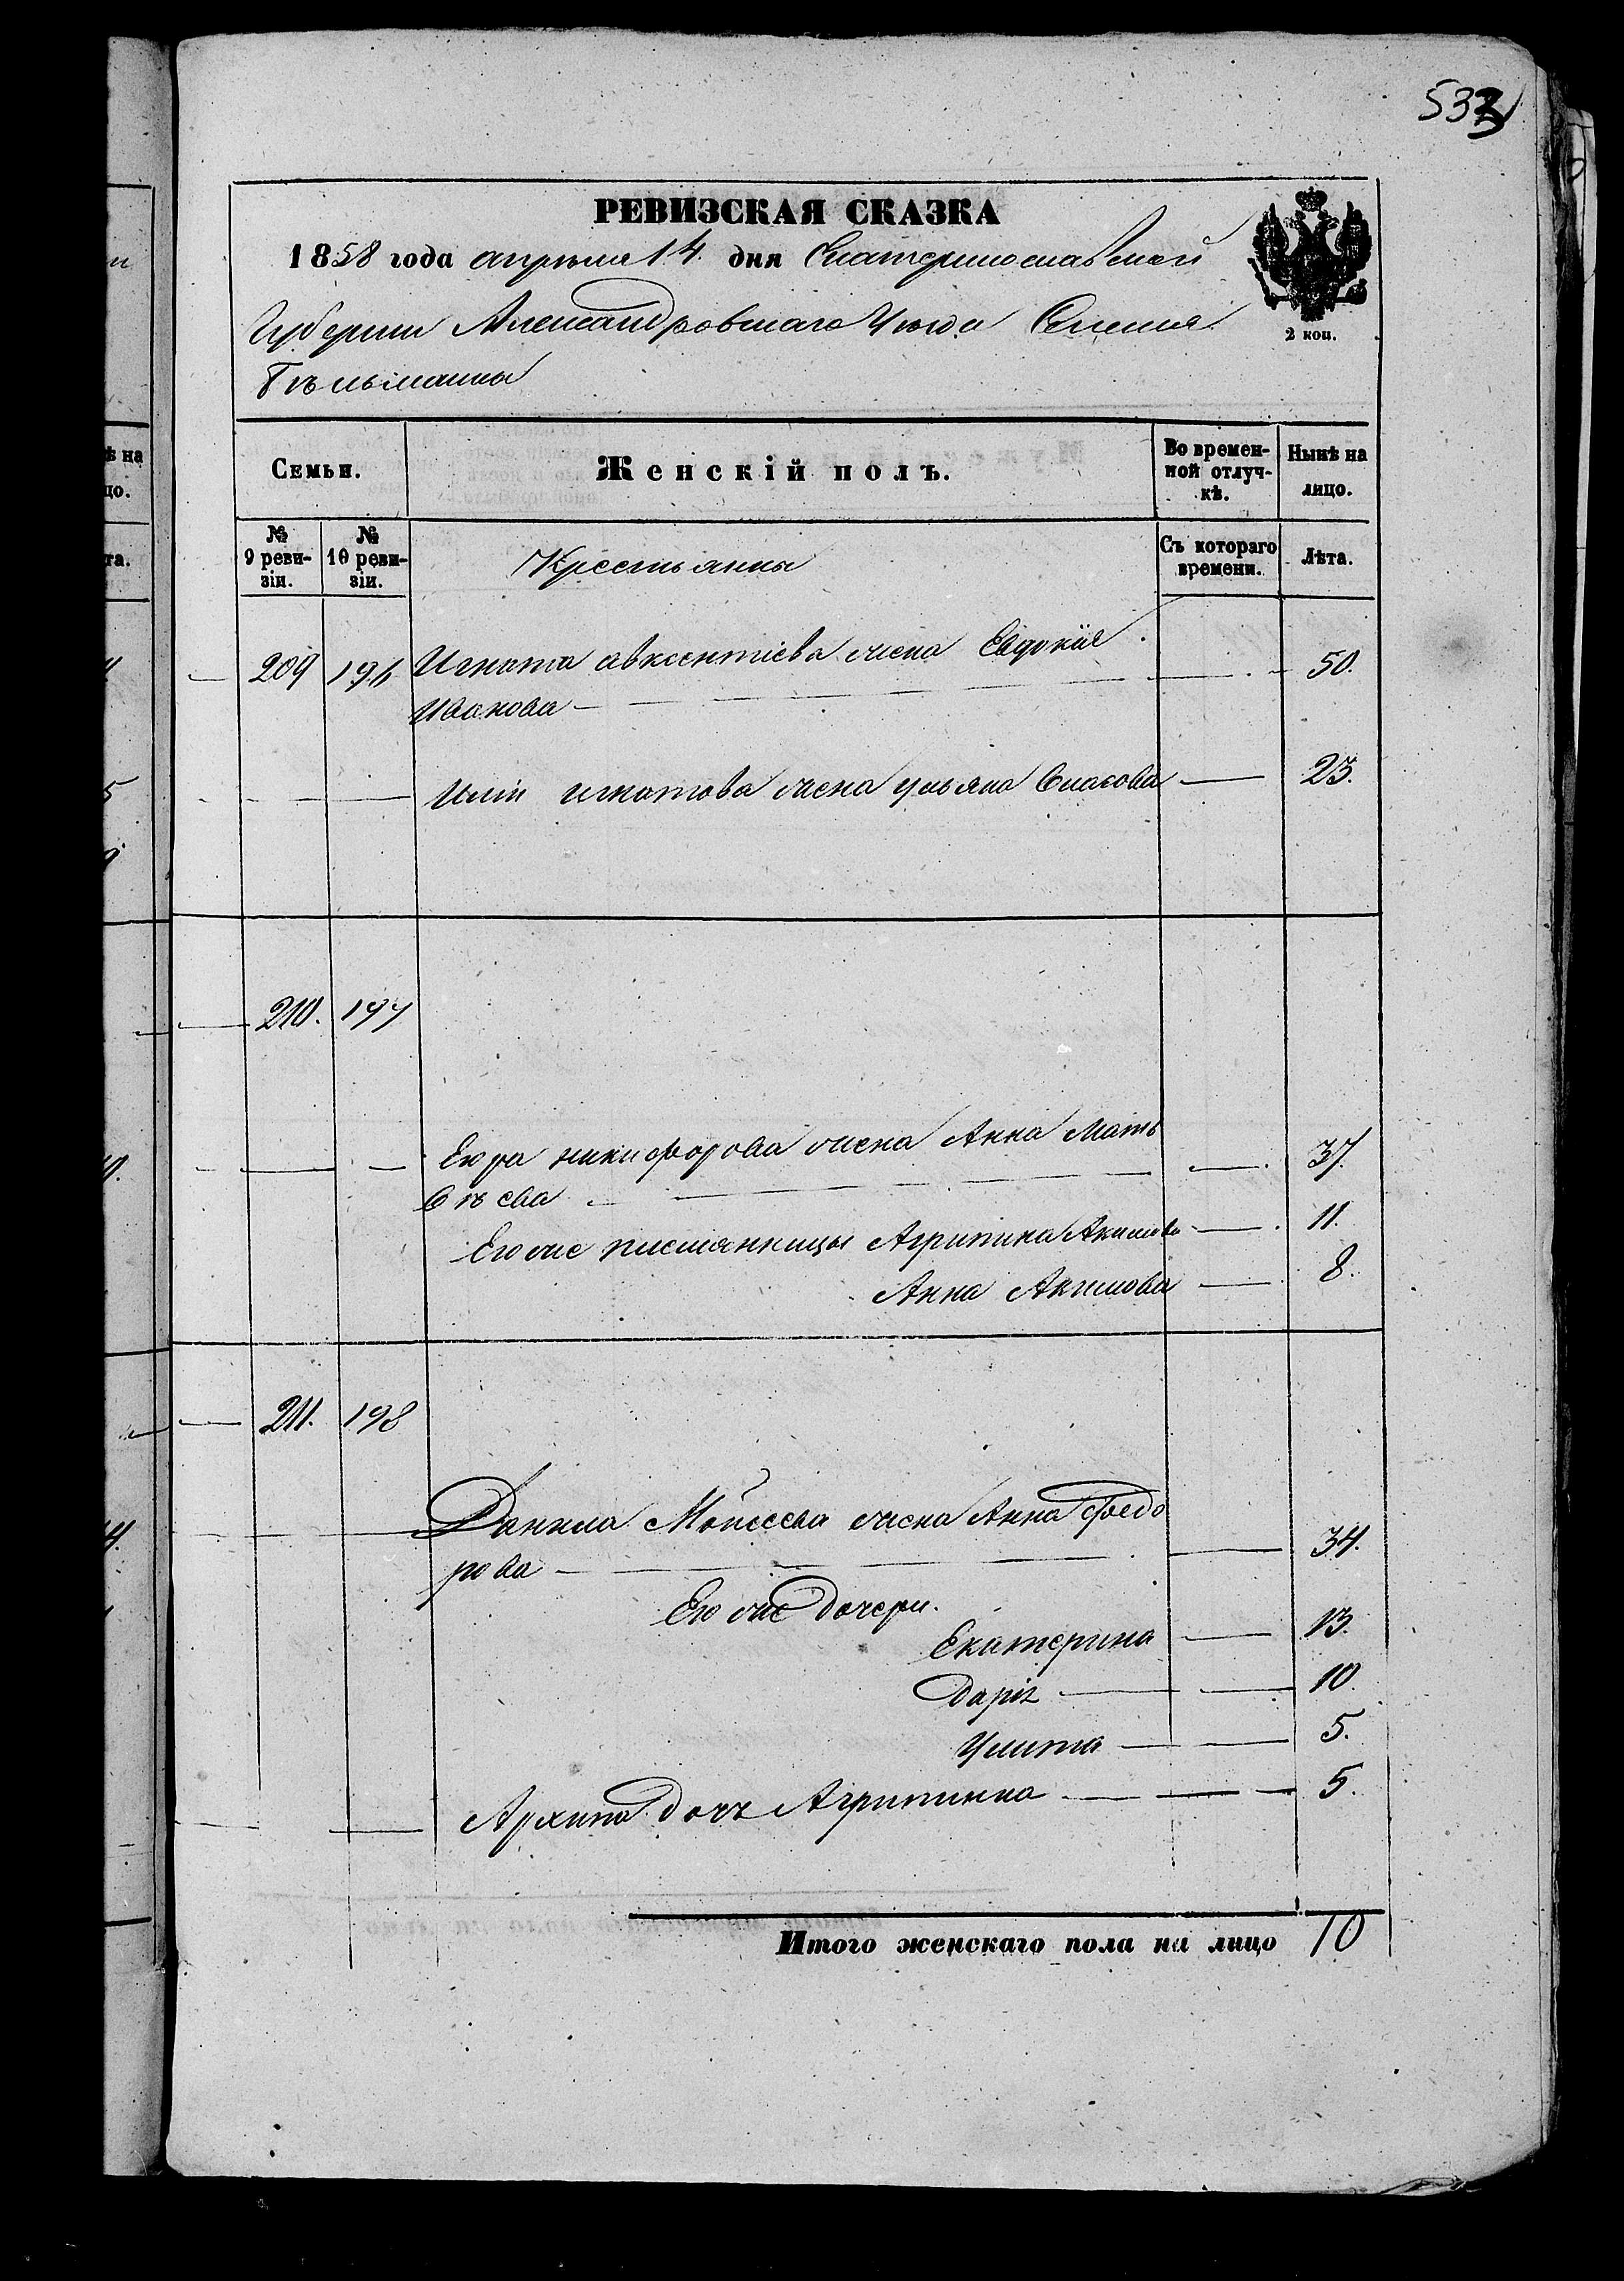 533
РЕВИЗСКАЯ СКАЗКА
1858 года апреля 14. дня Екатеринославской
Губернии Александровскаго Уезда Селения
Гусылманки
2 коп.
Семьи.
Женскій полъ.
Во времен-
ной отлуч-
кѣ.
Нынѣ на
лицо.
№
9 реви-
зіи.
№
10 реви-
зіи.
Крестьянки
Съ котораго
времени.
Лѣта.
209 196 Игната авксентіева жена Евдокия 50.
Иванова
Илiи игнатова жена ульяна Власова 23.
210. 197
Егора никифорова жена Анна Мать 37.
вѣева
Его же племянницы Агрипина Акимова 11.
Анна Акимова 8.
211. 198
Данила Мойсеева жена Анна Федо 34.
рова
Его же дочери.
Екатерина 13.
Дарiя 10.
Улита 5.
Архипа дочь Агрипинна 5.
Итого женскаго пола на лицо 10